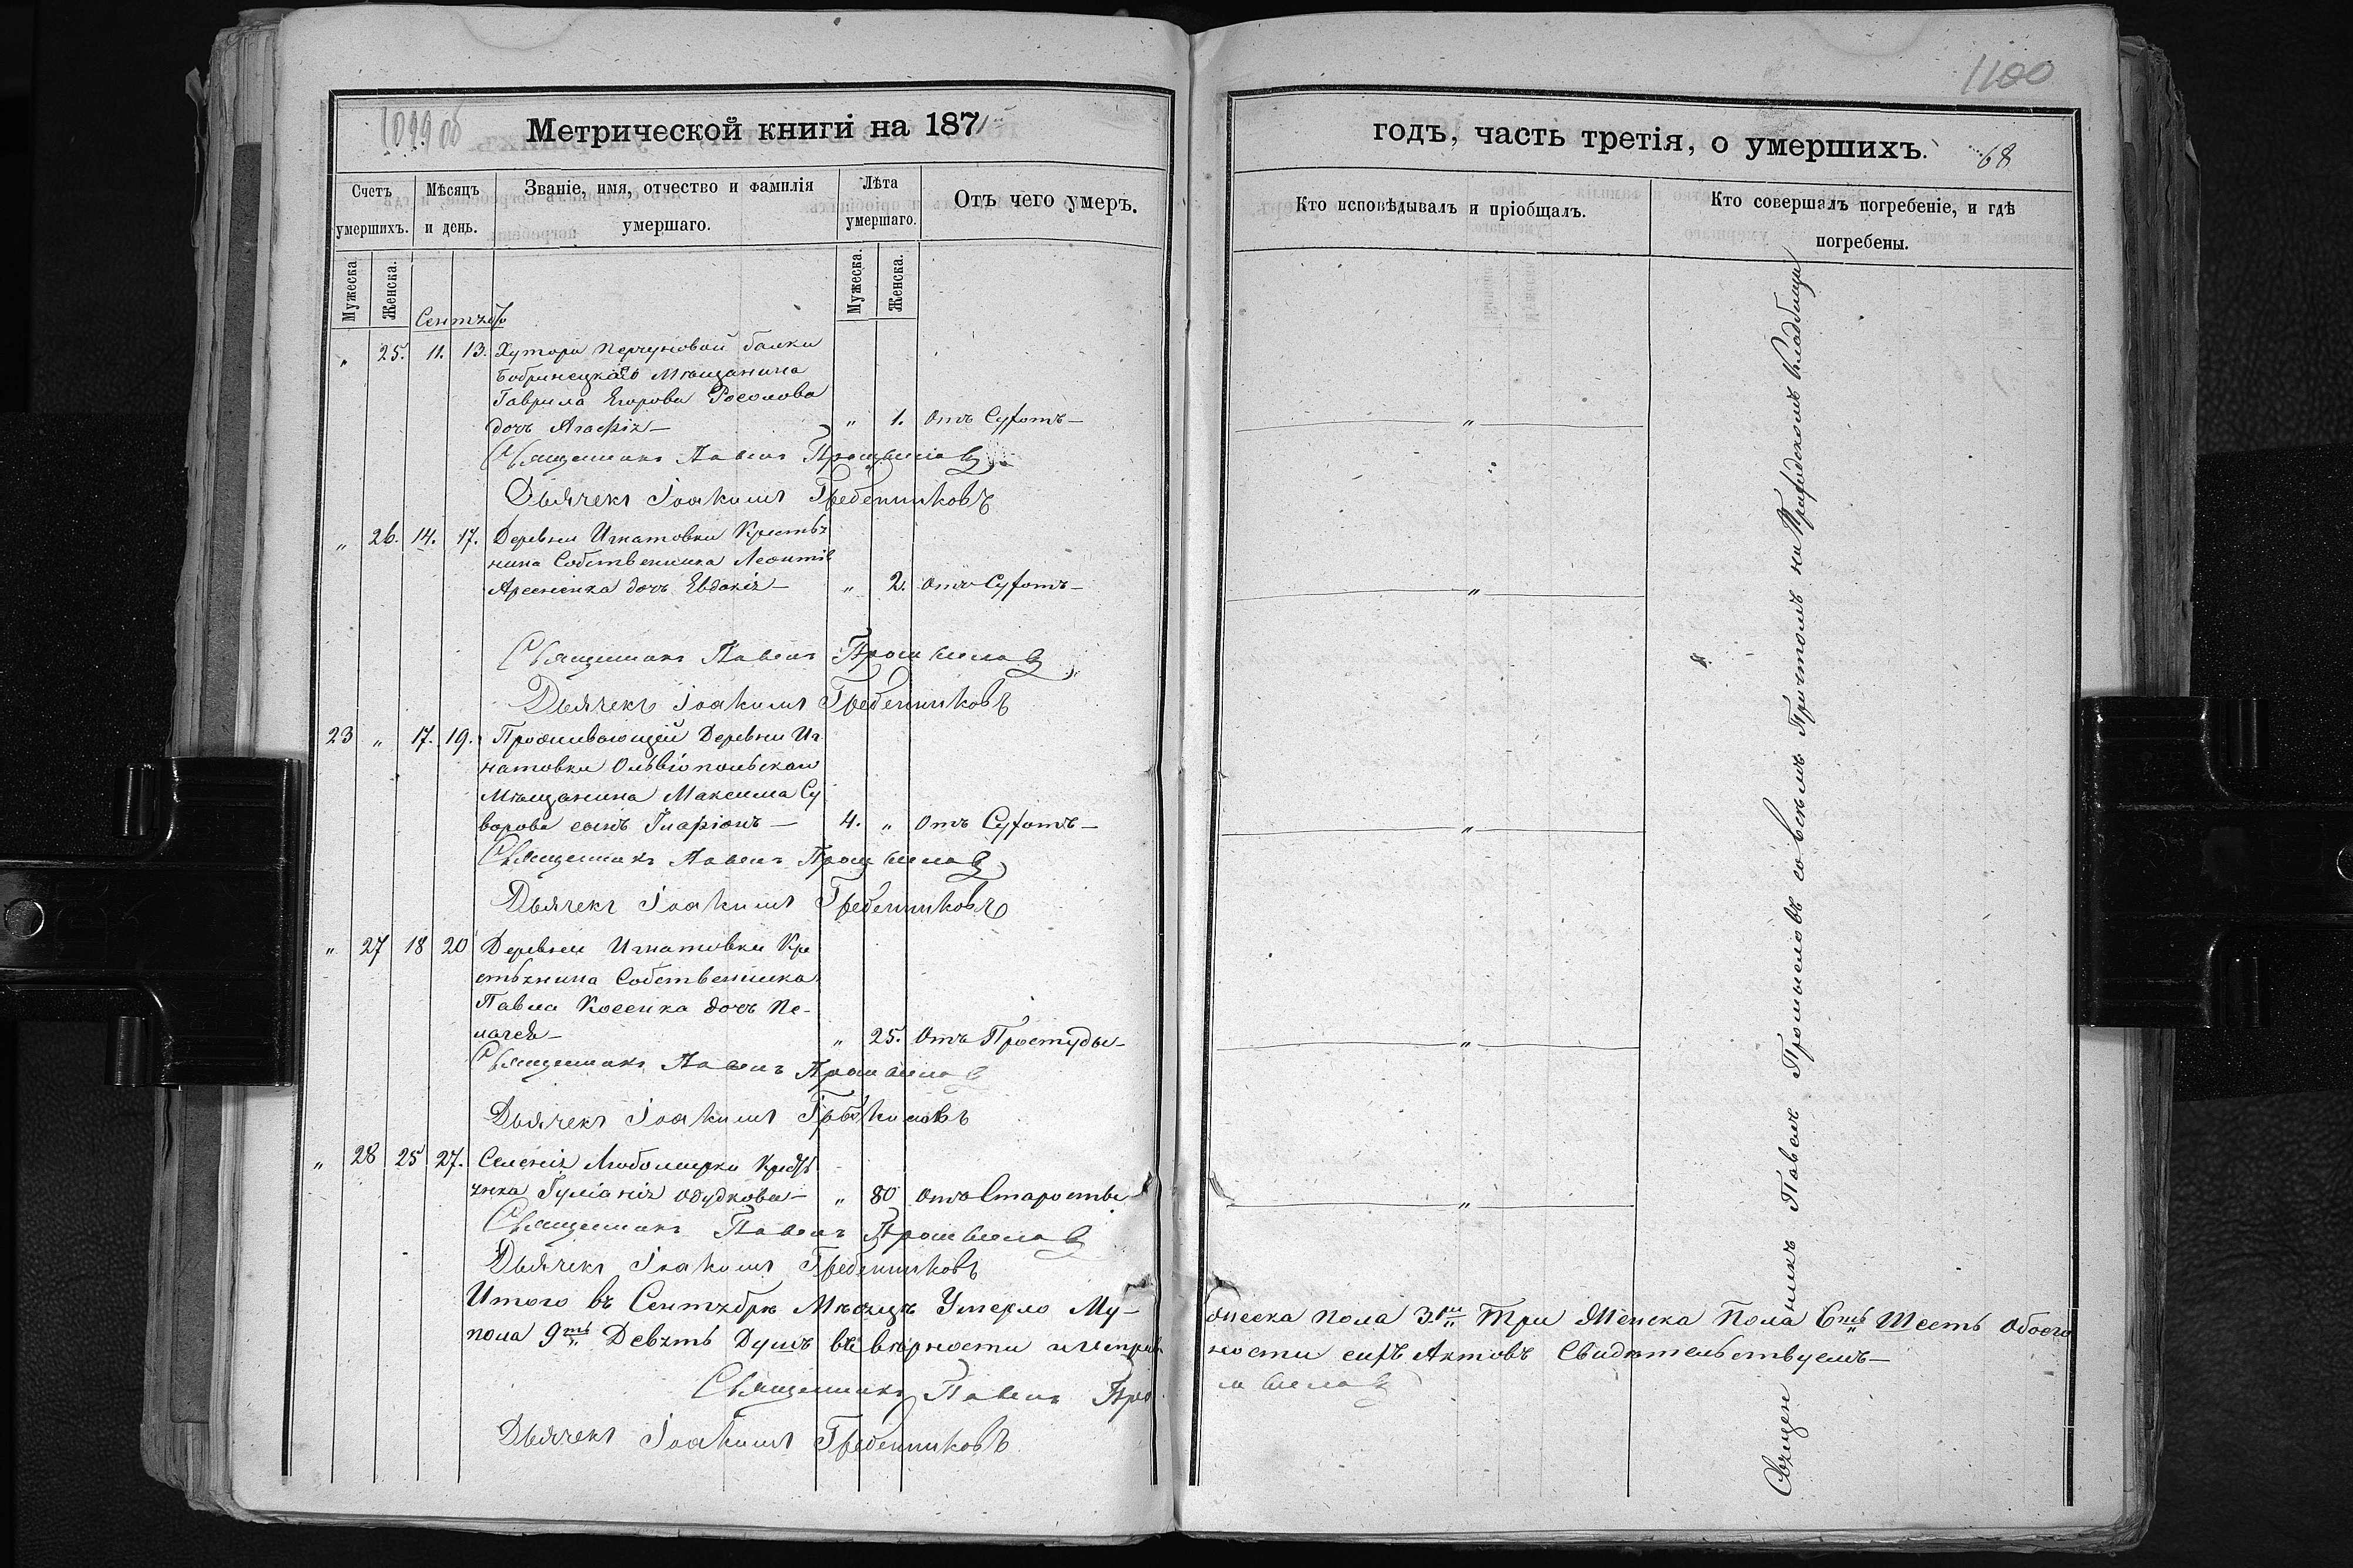 1099 об
Метрической книги на 1871
Счетъ умершихъ.
Мѣсяцъ и день.
Званіе, имя, отчество и фамилія умершаго.
Лѣта умершаго.
Отъ чего умеръ.
Мужеска.
Женска.
Мужеска.
Женска.
Сентябр
" 25. 11. 13. Хутора Перчуновой балки
Бобринецкаго Мѣщанина
Гаврила Егорова Росолова
дочь Агафія — " 1. Отъ Сухотъ —
Священникъ Павелъ Промысловъ
Дьячекъ Іоакимъ Гребенниковъ
" 26. 14. 17. Деревни Игнатовки Крестья
нина Собственника Леонтія
Арсенка дочь Евдокія — " 2. Отъ Сухотъ —
Священникъ Павелъ Промысловъ
Дьячекъ Іоакимъ Гребенниковъ
23 " 17. 19. Проживающей Деревни Иг
натовки Ольвіопольскаго
Мѣщанина Максима Су
ворова сынъ Иларіонъ — 4. " Отъ Сухотъ —
Священникъ Павелъ Промысловъ
Дьячекъ Іоакимъ Гребенниковъ
" 27 18 20 Деревни Игнатовки Кре
стьянина Собственника
Павла Косенка дочь Пе-
лагея — " 25. Отъ Простуды —
Священникъ Павелъ Промысловъ
Дьячекъ Іоакимъ
" 28 25 27. Селенія Любомирки Крестья
янка Гуліанія Одудкова — " 80 Отъ Старости
Священникъ Павелъ Промысловъ
Дьячекъ Іоакимъ Гребенниковъ
Итого въ Сентябрѣ Мѣсяцѣ Умерло Му-
пола 9ть Девять Душъ въ вѣрности и исправ
Священникъ Павелъ Про
Дьячекъ Іоакимъ Гребенниковъ
1100
годъ, часть третія, о умершихъ.
68
Кто исповѣдывалъ и пріобщалъ.
Кто совершалъ погребеніе, и гдѣ погребены.
Священникъ Павелъ Промысловъ со всѣмъ Причтомъ на Приходскомъ Кладбищи
жеска пола 3ри Три Женска Пола 6ть Шесть Обоего
ности сихъ Актовъ Свидѣтельствуемъ —
мысловъ